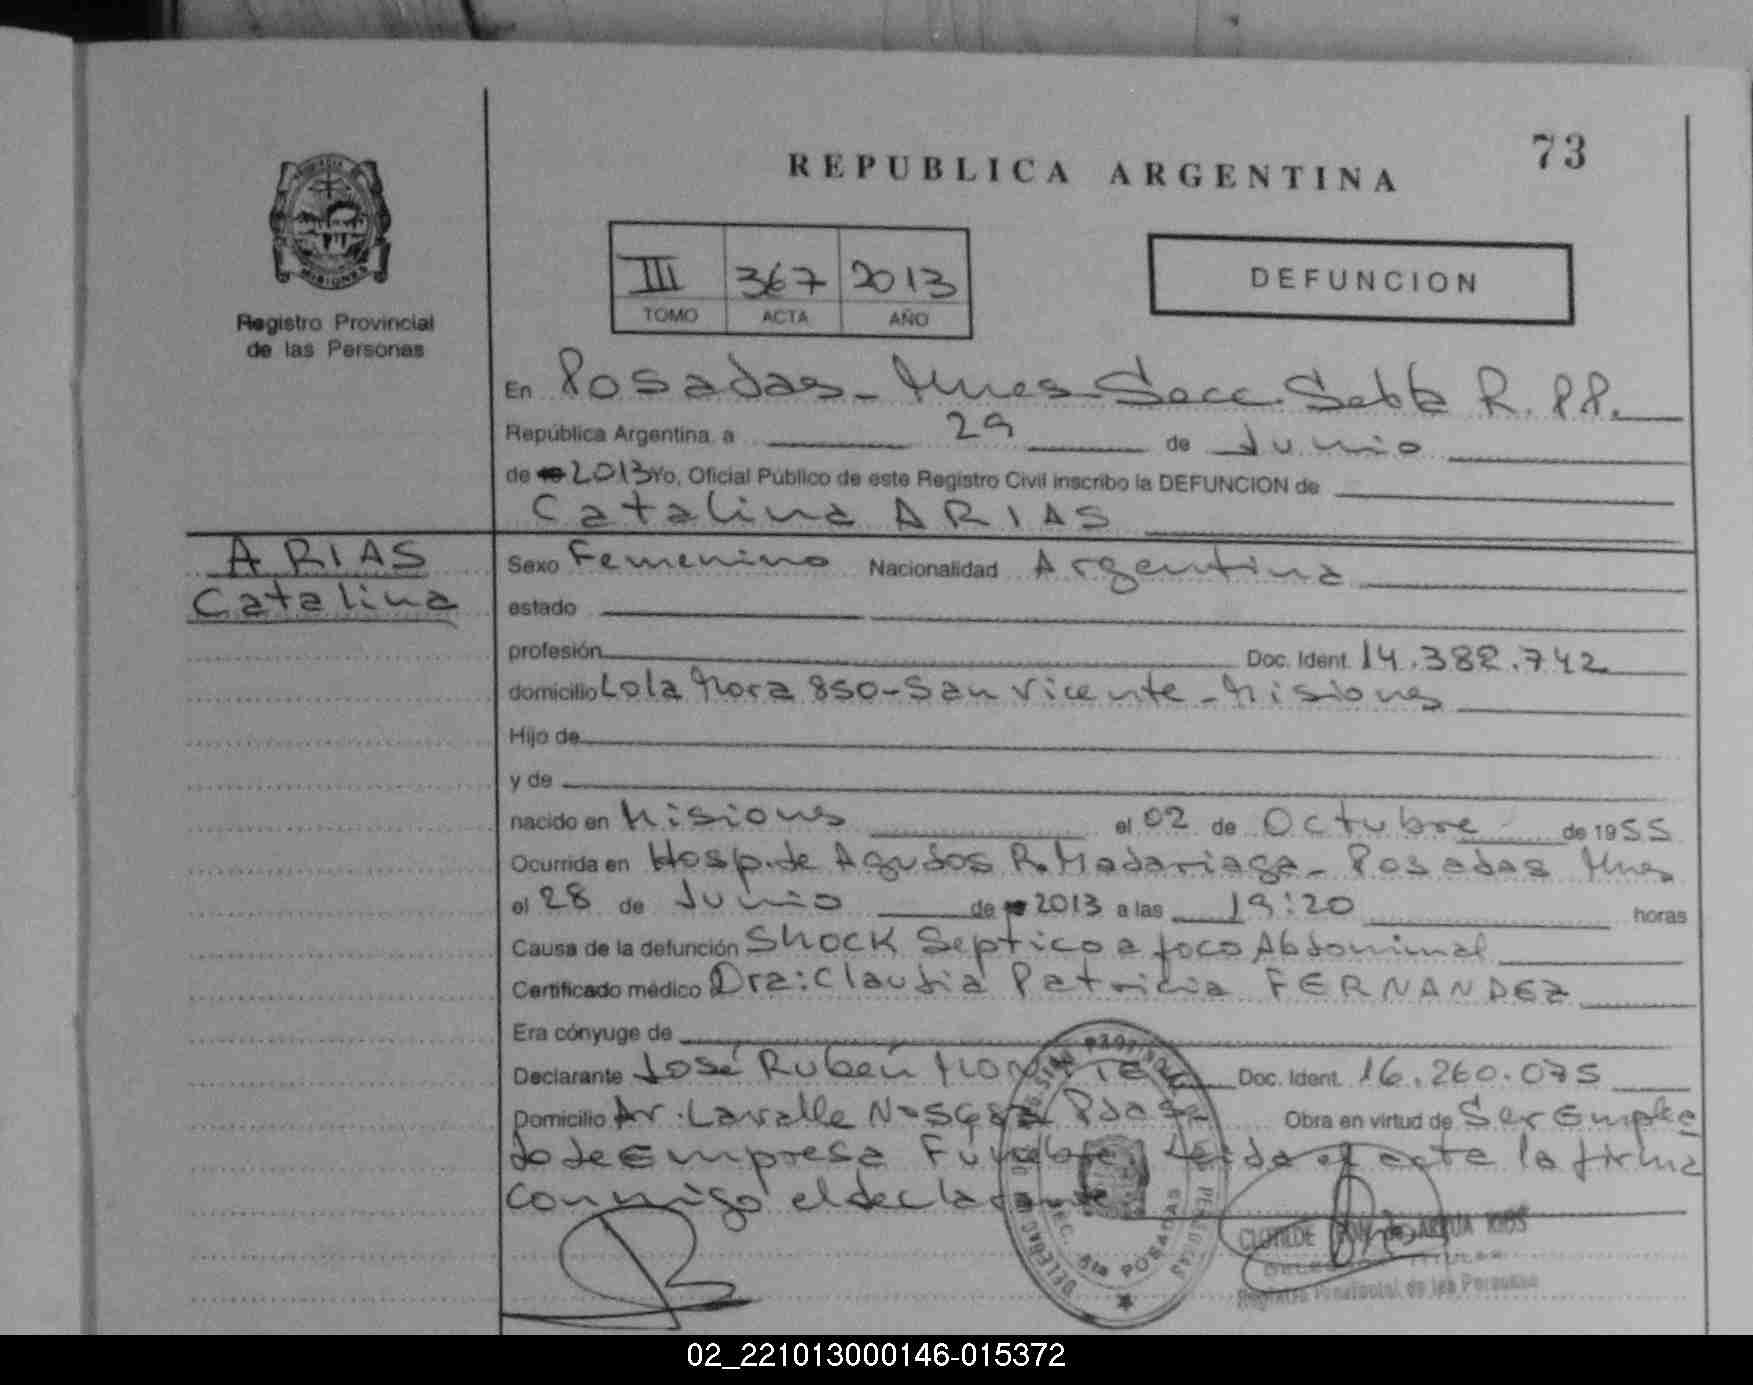 73
REPUBLICA ARGENTINA
III 367 2013
TOMO ACTA AÑO
DEFUNCION
MISIONES
Registro Provincial
de las Personas
En Posadas - Mnes Secc. Sexta R.PP.
República Argentina, a 29 de Junio
de 2013 Yo, Oficial Público de este Registro Civil inscribo la DEFUNCION de
Catalina ARIAS
ARIAS
Catalina
Sexo Femenino Nacionalidad Argentina
estado
profesión Doc. Ident. 14.382.742
domicilio Lola Mora 850 - San Vicente - Misiones
Hijo de
y de
nacido en Misiones el 02 de Octubre de 1955
Ocurrida en Hosp. de Agudos R. Madariaga - Posadas Mnes
el 28 de Junio de 2013 a las 19:20 horas
Causa de la defunción Shock Septico a foco Abdominal
Certificado médico Dra: Claudia Patricia FERNANDEZ
Era cónyuge de
Declarante José Rubén Doc. Ident. 16.260.075
Domicilio Av. Lavalle Obra en virtud de Ser Emplea
do de Empresa Funebre Leida el acta la firma
conmigo el declarante
SEC. 6ta POSADAS
CLOTILDE
Registro Provincial de las Personas
02_221013000146-015372